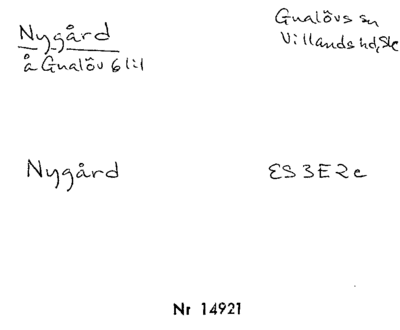 Nygård
å Gualöv 6 lit
Gualövs sn
Villands hd, Sk
Nygård
ES 3E2c
Nr 14921